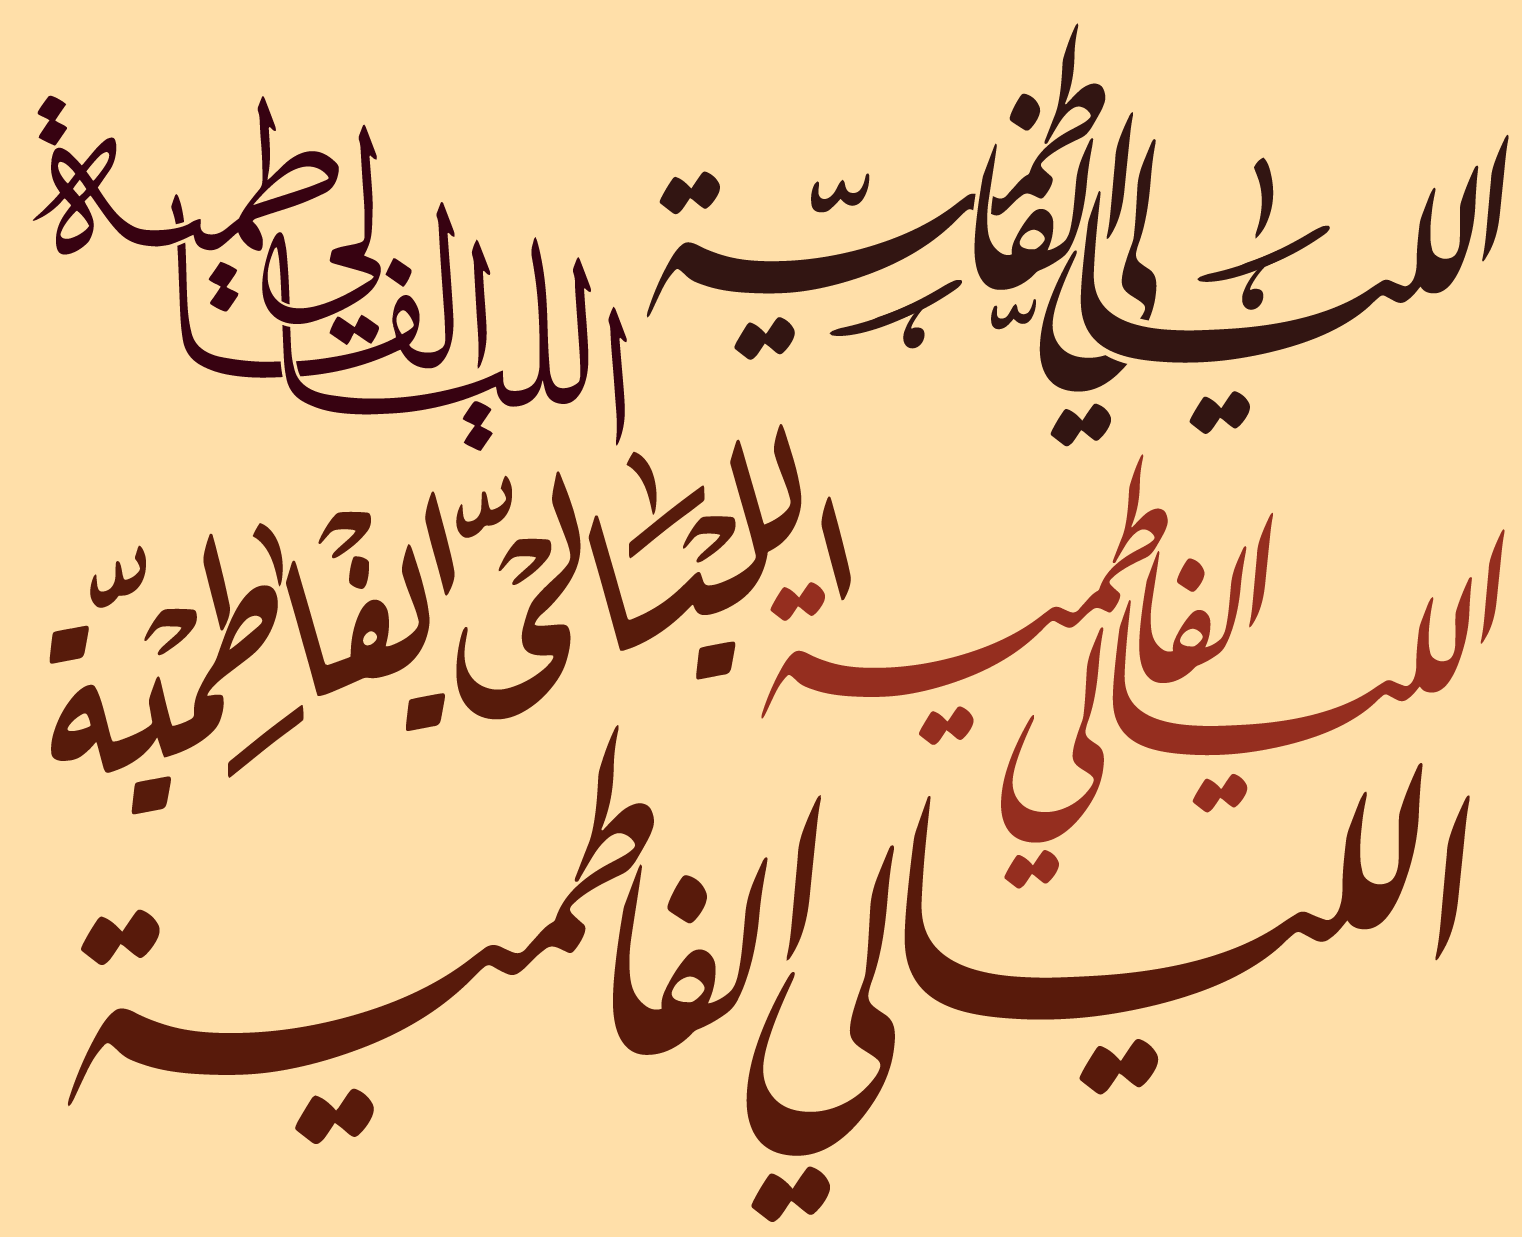 الليالي الفاطمية
الليالي الفاطميّة
الليالي الفاطمية
اللْيَاليّْ الفْاطِمْيّة
الليالي الفاطمية